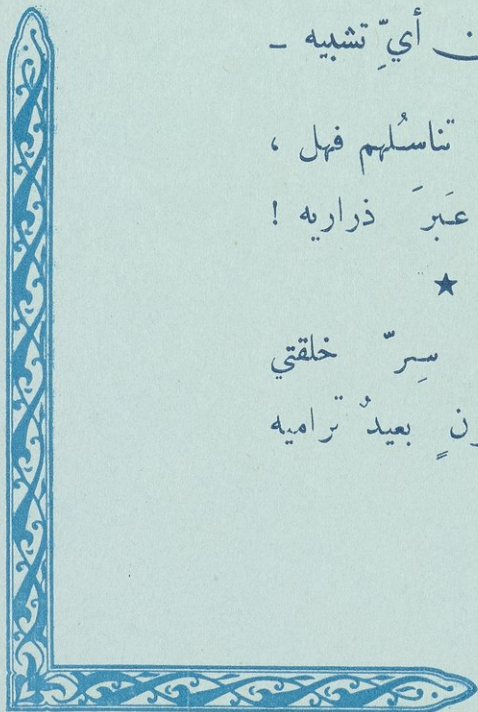 أيِّ تشبيه –
تناسُلهم فهل ،
عَبرَ ذراريه !
★
سِرّ خلقتي
بعيدٌ تراميه